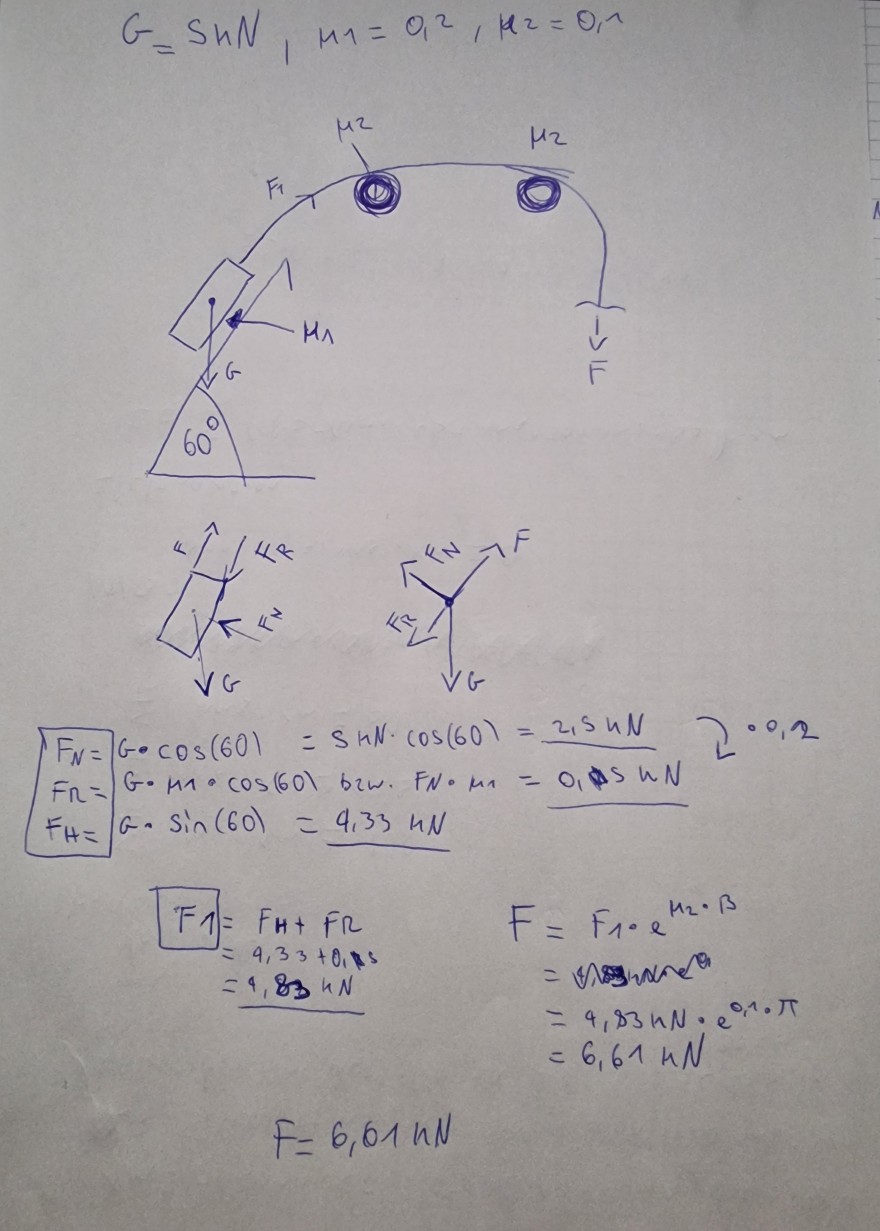 G = 5kN, μ1 = 0,2, μ2 = 0,1
μ2
μ2
F1
μ1
G
F
60°
F FR
FN
G
FN F
FR
G
FN = G • cos(60) = 5 kN • cos(60) = 2,5 kN • 0,2
FR = G • μ1 • cos(60) bzw. FN • μ1 = 0,5 kN
FH = G • sin(60) = 4,33 kN
F1 = FH + FR
= 4,33 + 0,5
= 4,83 kN
F = F1 • e^μ2 • β
= 4,83 kN • e^0,1 • π
= 6,61 kN
F = 6,61 kN